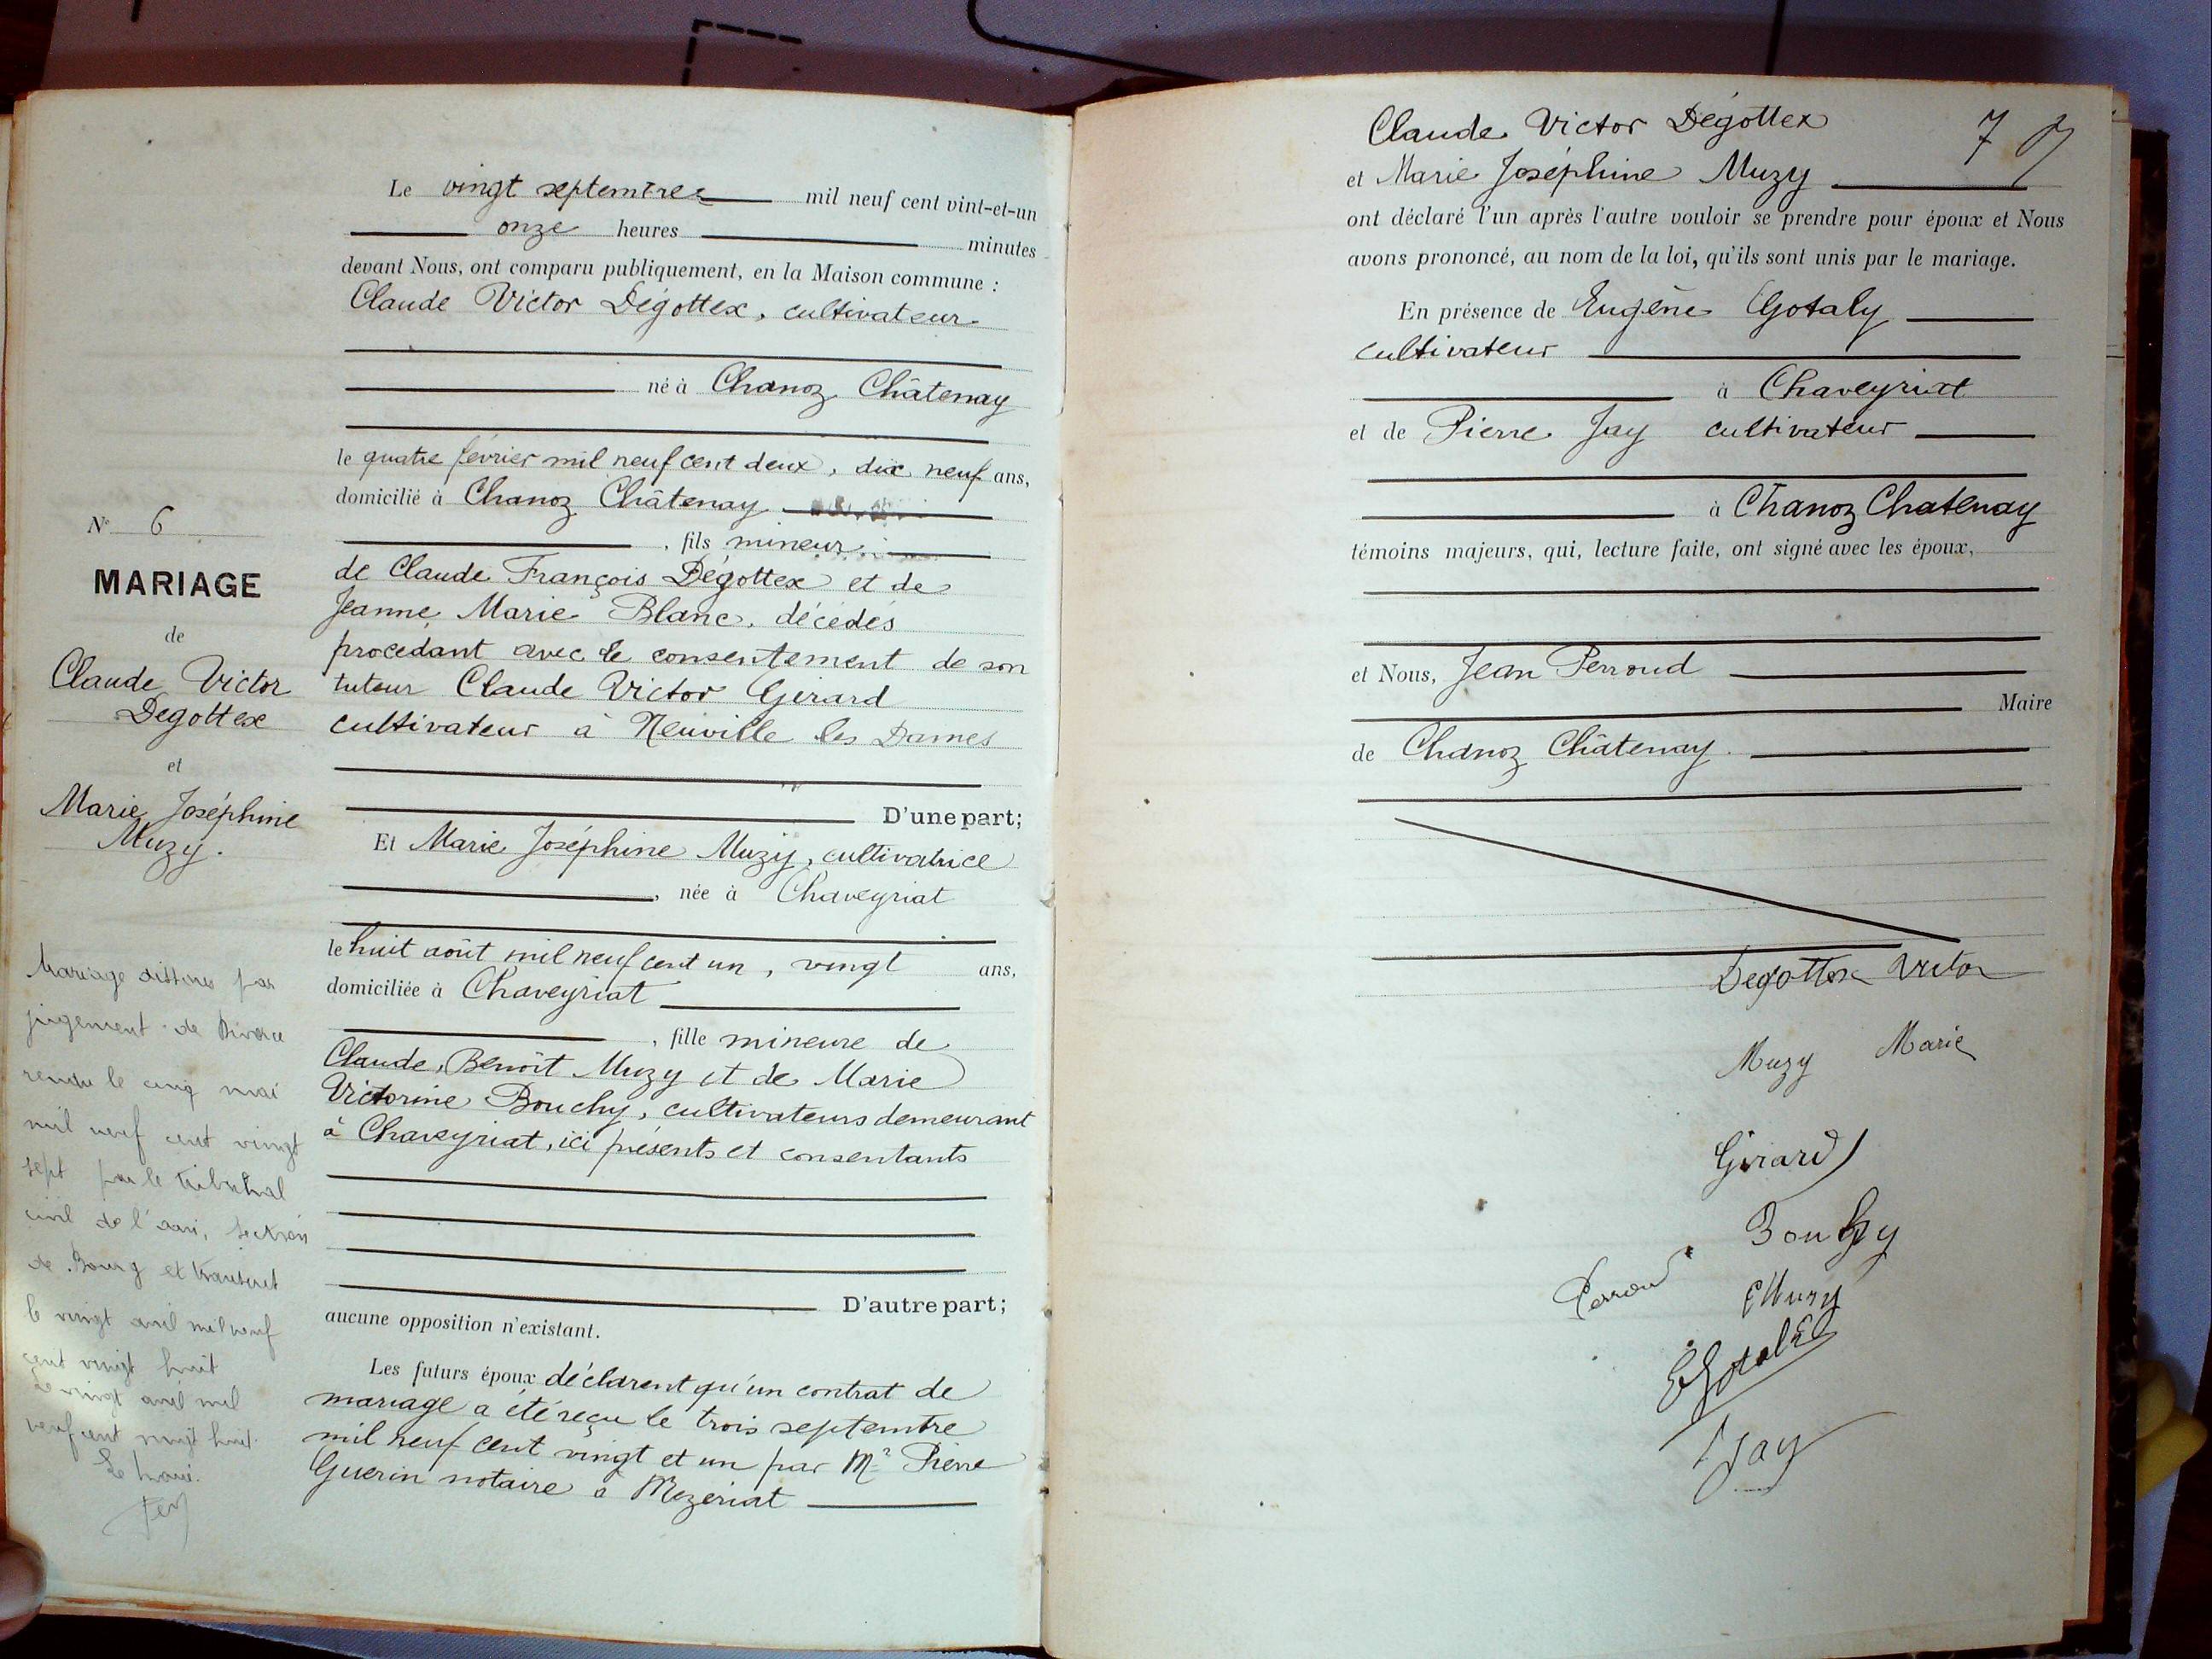 Le vingt septembre mil neuf cent vint-et-un
onze heures minutes
devant Nous, ont comparu publiquement, en la Maison commune :
Claude Victor Dégottex, cultivateur
né à Chanoz Châtenay
le quatre février mil neuf cent deux, dix neuf ans,
domicilié à Chanoz Châtenay
, fils mineur
de Claude François Dégottex et de
Jeanne Marie Blanc, décédés
procedant avec le consentement de son
tuteur Claude Victor Girard
cultivateur à Neuville les Dames
D'une part;
Et Marie Joséphine Muzy, cultivatrice
, née à Chaveyriat
le huit août mil neuf cent un, vingt ans,
domiciliée à Chaveyriat
, fille mineure de
Claude, Benoît Muzy et de Marie
Victorine Bouchy, cultivateurs demeurant
à Chaveyriat, ici présents et consentants
D'autre part;
aucune opposition n'existant.
Les futurs époux déclarent qu'un contrat de
mariage a été reçu le trois septembre
mil neuf cent vingt et un par Me Pierre
Guerin notaire à Mezeriat
N° 6
MARIAGE
de
Claude Victor
Dégottex
et
Marie Joséphine
Muzy.
Mariage dissous par
jugement de Divorce
rendu le cinq mai
mil neuf cent vingt
sept par le tribunal
civil de l'ain, section
de Bourg et transcrit
le vingt avril mil neuf
cent vingt huit
Le vingt avril mil
neuf cent vingt huit.
Le
Claude Victor Dégottex
7
et Marie Joséphine Muzy
ont déclaré l'un après l'autre vouloir se prendre pour époux et Nous
avons prononcé, au nom de la loi, qu'ils sont unis par le mariage.
En présence de Eugène Gotaly
cultivateur
à Chaveyriat
et de Pierre Jay cultivateur
à Chanoz Chatenay
témoins majeurs, qui, lecture faite, ont signé avec les époux,
et Nous, Jean Perroud
Maire
de Chanoz Châtenay.
Degottex Victor
Muzy Marie
Girard
Bouchy
Perroud
Muzy
E Gotaly
Jay